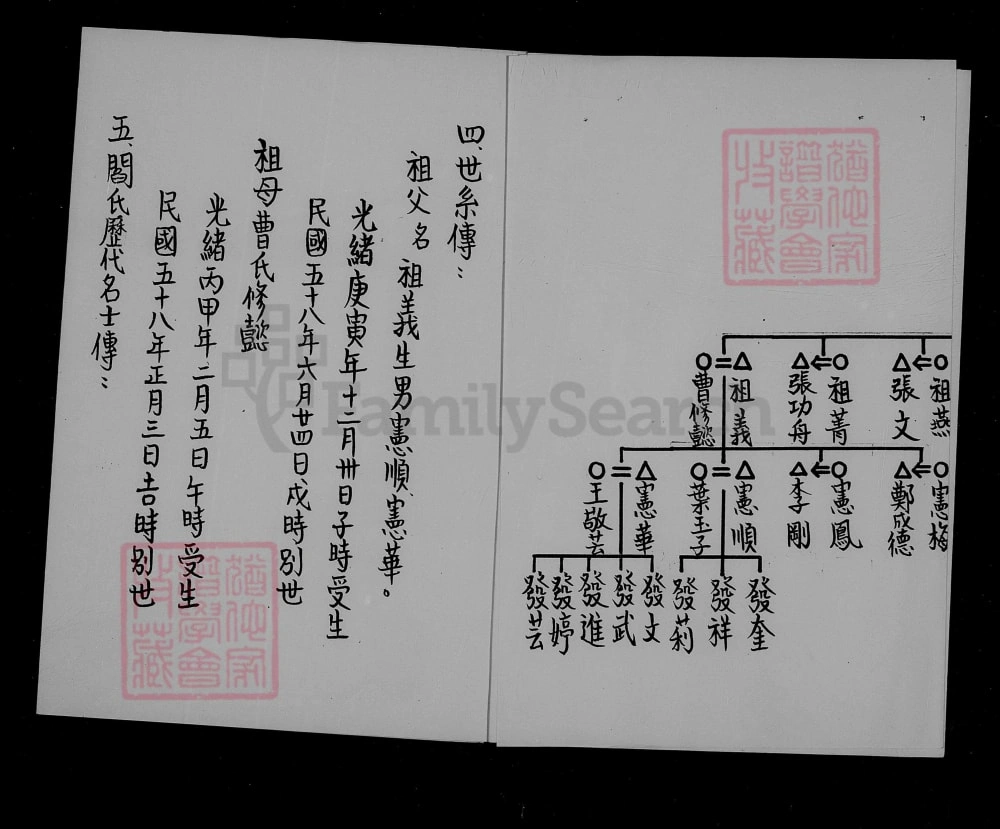 祖燕
張文
祖菁
張功舟
祖義
曹修懿
憲梅
鄭成德
憲鳳
李剛
憲順
葉玉子
憲華
王敬芸
發奎
發祥
發莉
發文
發武
發進
發婷
發芸
四、世系傳：
祖父名祖義生男憲順、憲華。
光緒庚寅年十二月卅日子時受生
民國五十八年六月廿四日戍時別世
祖母曹氏修懿
光緒丙甲年二月五日午時受生
民國五十八年正月三日吉時別世
五、閻氏歷代名士傳：
FamilySearch